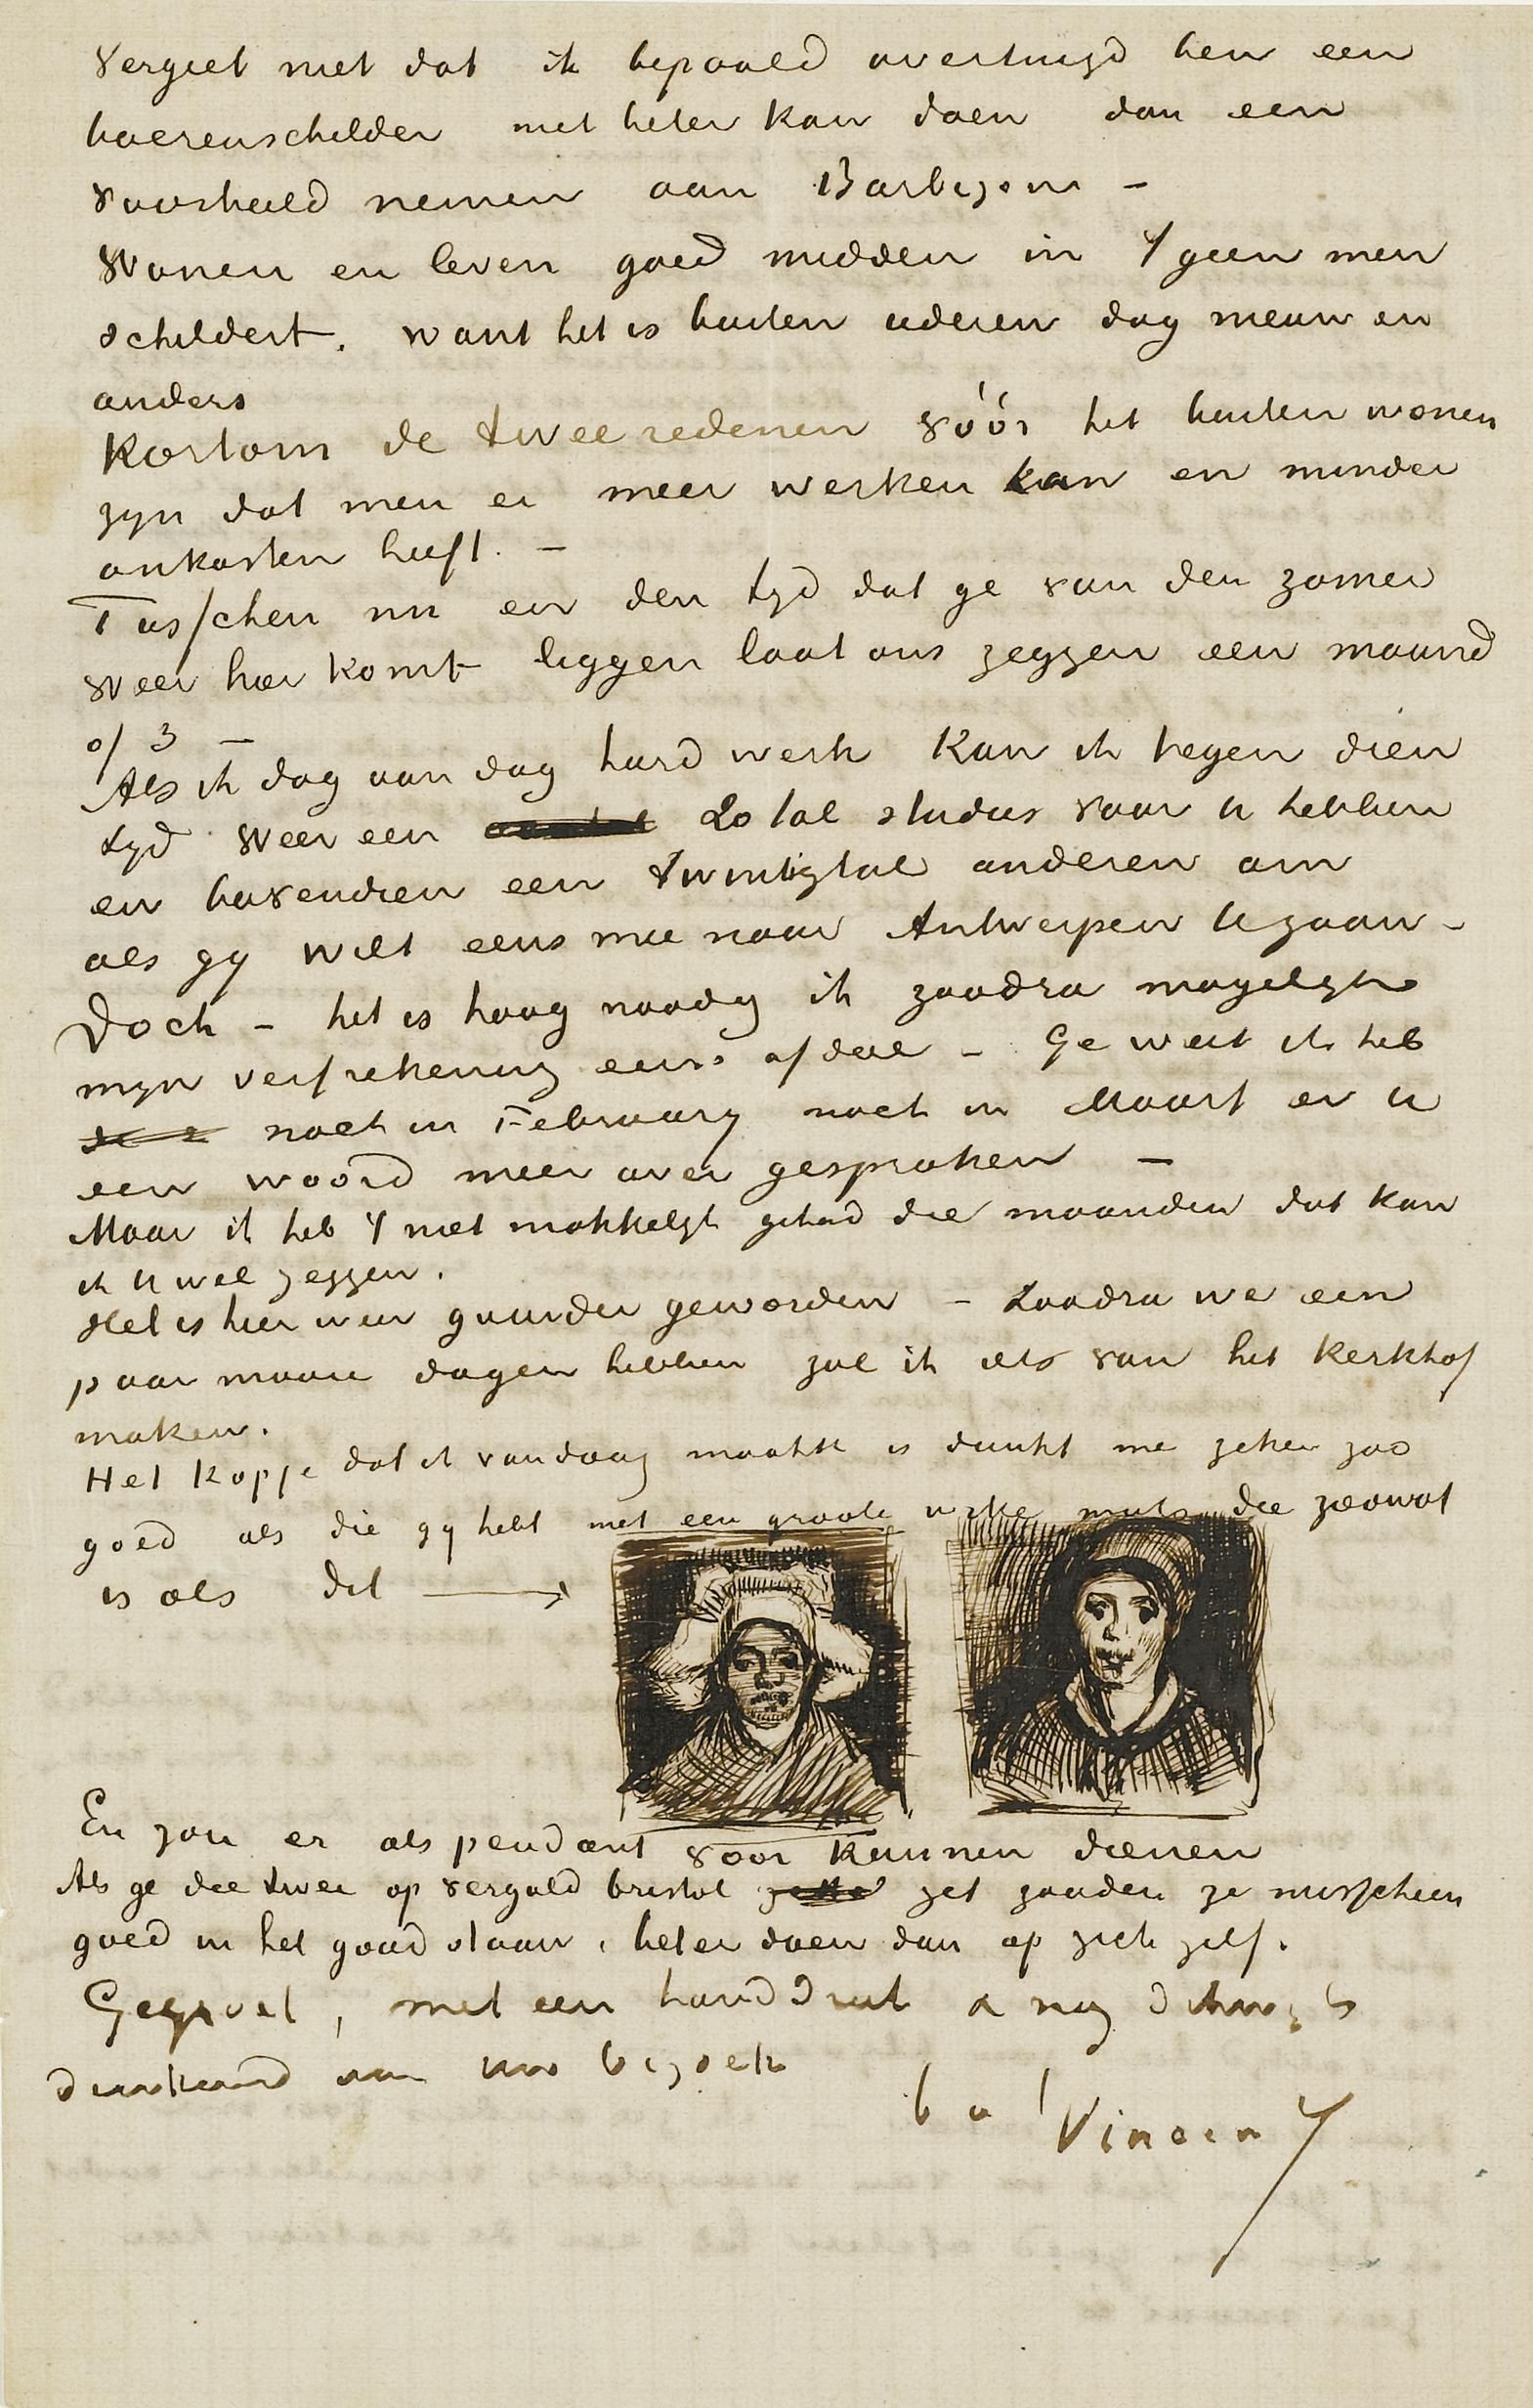 Vergeet niet dat ik bepaald overtuigd ben een
boerenschilder niet beter kan doen dan een
voorbeeld nemen aan Barbizon –
Wonen en leven goed midden in 't geen men
schildert. want het is buiten iederen dag nieuw en
anders
Kortom de twee redenen vóór het buiten wonen
zyn dat men er meer werken kan en minder
onkosten heeft. –
Tusschen nu en den tyd dat ge van den zomer
weer hier komt liggen laat ons zeggen een maand
of 3 –
Als ik dag aan dag hard werk kan ik tegen dien
tyd weer een 20 tal studies voor U hebben
en bovendien een twintigtal anderen om
als gy wilt eens mee naar Antwerpen te gaan –
Doch – het is hoog noodig ik zoodra mogelyk
myn verfrekening eens afdoe – Ge weet ik heb
noch in February noch in Maart er U
een woord meer over gesproken –
Maar ik heb 't niet makkelyk gehad die maanden dat kan
ik U wel zeggen.
Het is hier weer guurder geworden – Zoodra we een
paar mooie dagen hebben zal ik iets van het kerkhof
maken.
Het kopje dat ik vandaag maakte is dunkt me zeker zoo
goed als die gy hebt met een groote witte muts die zoowat
is als dit
En zou er als pendant voor kunnen dienen
Als ge die twee op verguld bristol zet zouden ze misschien
goed in het goud staan, beter doen dan op zich zelf.
Gegroet, met een handdruk & nog
dankend voor Uw bezoek
b à t Vincent